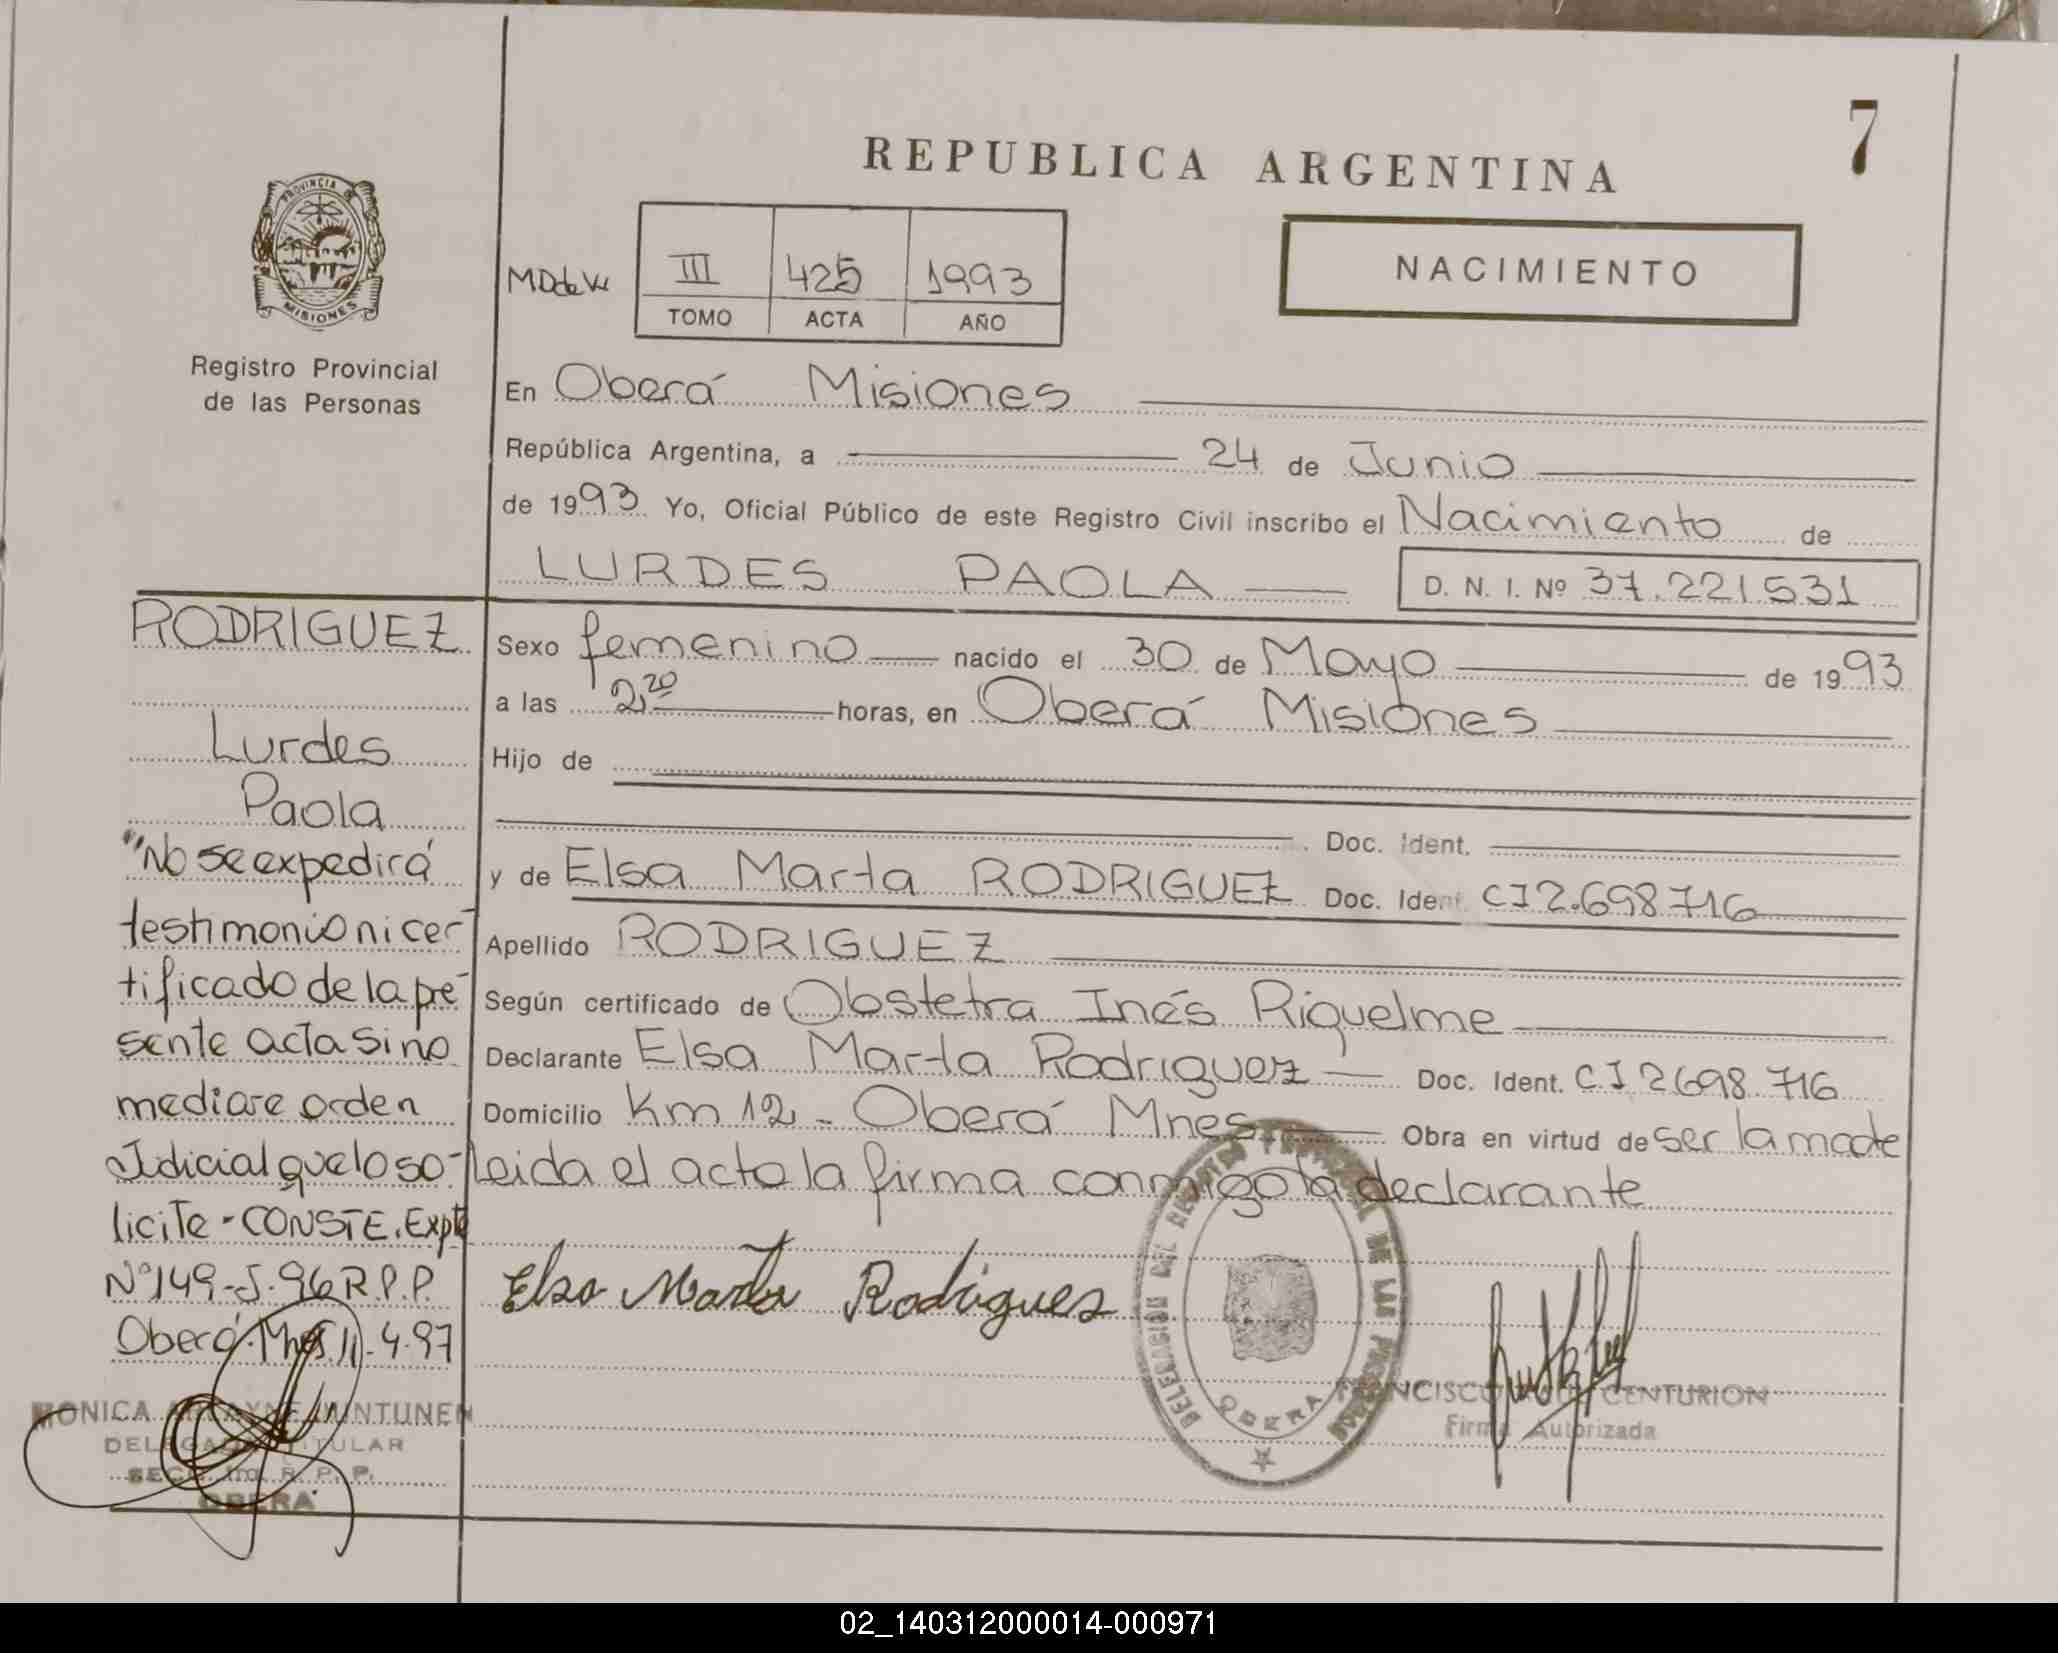 7
REPUBLICA ARGENTINA
PROVINCIA DE
MISIONES
Registro Provincial
de las Personas
III 425 1993
TOMO ACTA AÑO
NACIMIENTO
En Oberá Misiones
República Argentina, a 24 de Junio
de 1993 Yo, Oficial Público de este Registro Civil inscribo el Nacimiento de
LURDES PAOLA D. N. I. Nº 37.221.531
Sexo femenino nacido el 30 de Mayo de 1993
a las 2,20 horas, en Oberá Misiones
Hijo de
Doc. Ident.
y de Elsa Marta RODRIGUEZ Doc. Ident. CI 2.698 716
Apellido RODRIGUEZ
Según certificado de Obstetra Inés Riquelme
Declarante Elsa Marta Rodriguez Doc. Ident. CI 2698.716
Domicilio Km 12 - Oberá Mnes Obra en virtud de ser la madre
Leida el acta la firma conmigo la declarante
Elsa Marta Rodrigues
DELEGACION DEL REGISTRO PROVINCIAL DE LAS PERSONAS
OBERA
FRANCISCO CENTURION
Firma Autorizada
RODRIGUEZ
Lurdes
Paola
"No se expedirá
testimonio ni cer-
tificado de la pre-
sente acta si no
mediare orden
Judicial que lo so-
licite - CONSTE. Expte
Nº 149-J-96 R.P.P.
Oberá Mnes 11-4-97
MONICA WINTUNEN
DELEGADO TITULAR
SECC. 1ra. R. P. P.
OBERA
02_140312000014-000971